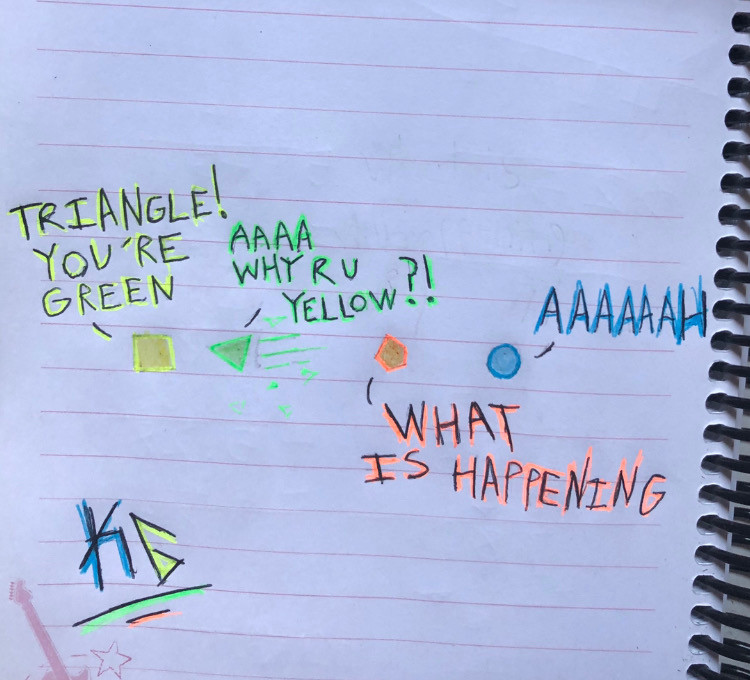 TRIANGLE!
YOU'RE
GREEN
AAAA
WHY R U
YELLOW?!
AAAAAAH
WHAT
IS HAPPENING